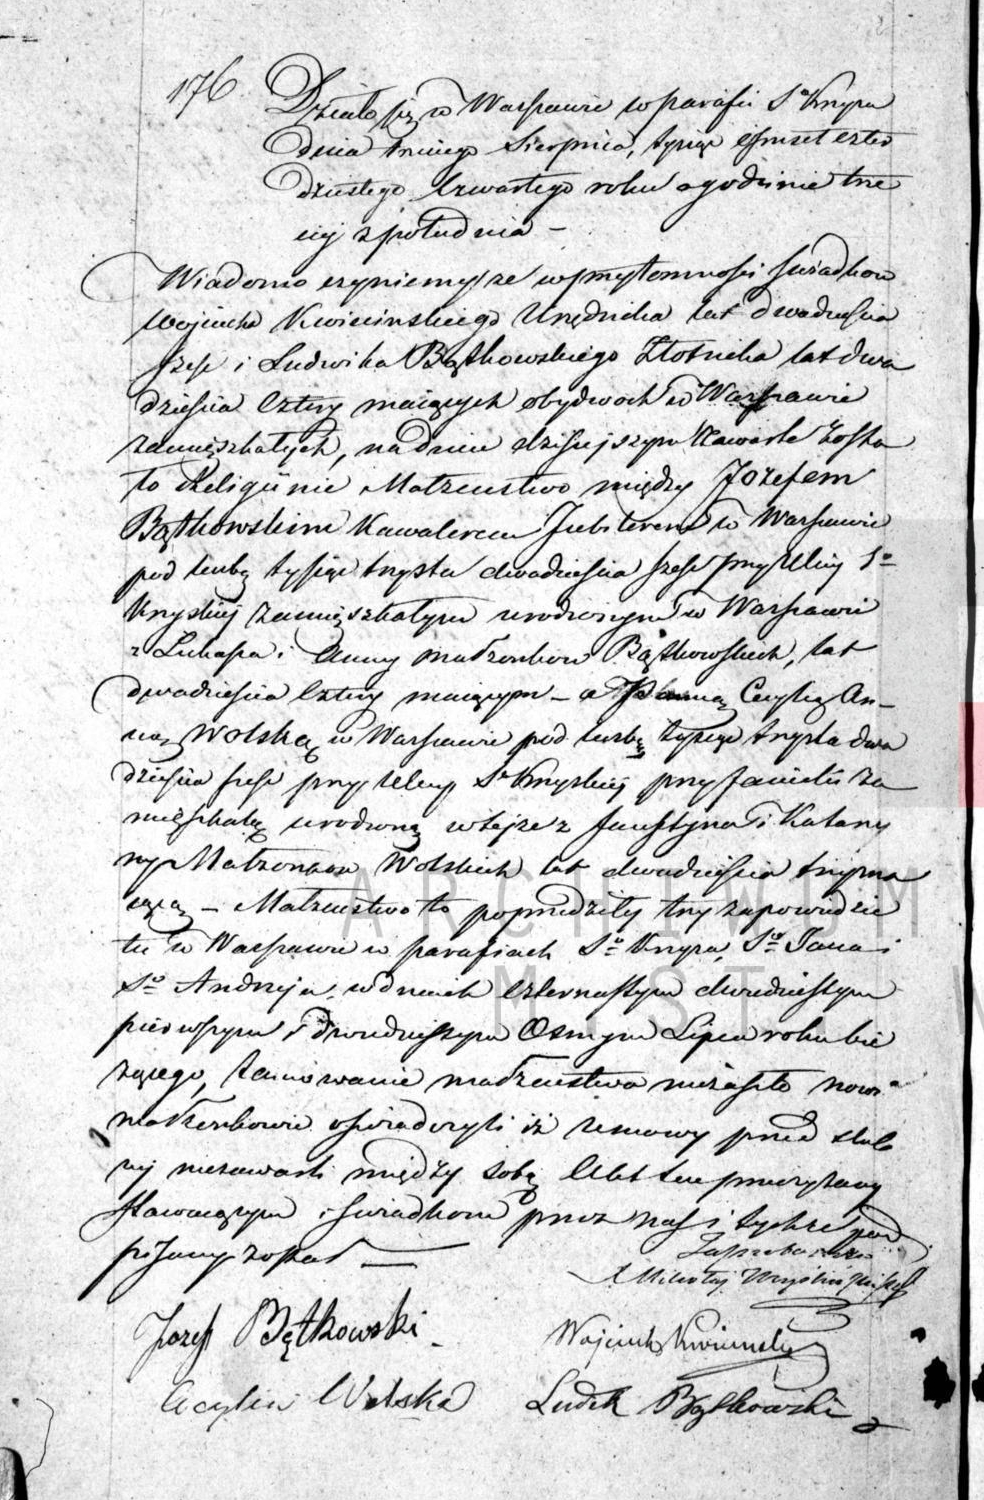 176
Działo się w Warszawie w parafii Sº Krzyża
dnia trzeciego Sierpnia, tysiąc ośmset czter
dziestego czwartego roku o godzinie trze
ciej z południa –
Wiadomo czyniemy, że w przytomności świadków
Wojciecha Kwiecinskiego Urzędnika lat dwadzieścia
sześć i Ludwika Bątkowskiego Złotnika lat dwa
dzieścia cztery maiących obydwóch w Warszawie
zamięszkałych, na dniu dzisiejszym zawarte zosta
ło Religijnie Małżeństwo między Józefem
Bątkowskim Kawalerem Jubilerem w Warszawie
pod liczbą tysiąc trzysta dwadzieścia sześć przy Ulicy Sº
Krzyskiej zamięszkałym urodzonym w Warszawie
z Łukasza i Anny małżonków Bątkowskich, lat
dwadzieścia cztery maiącym – a Panną Cecylią An–
ną Wolską w Warszawie pod liczbą tysiąc trzysta dwa
dzieścia sześć przy Ulicy Sº Krzyskiej przy familii za
mięszkałą urodzoną w tejże z Faustyna i Katarzy
ny Małżonków Wolskich lat dwadzieścia trzy ma
iącą – Małżeństwo to poprzedziły trzy zapowiedzie
tu w Warszawie w parafiach Sº Krzyża, Sº Jana i
Sº Andrzeja, w dniach czternastym dwudziestym
pierwszym i dwudziestym Osmym Lipca roku bie
żącego, tamowanie małżeństwa nie zaszło nowi
małżonkowie oświadczyli iż umowy przed ślub
nej niezawarli między sobą Akt ten przeczytany
stawaiącym i świadkom przez nas i tychże pod
pisany został —
Mikołaj
Józef Bątkowski
Wojciech Kwiecinski
Cecylia Wolska
Ludwik Bątkowski
ARCHIWUM